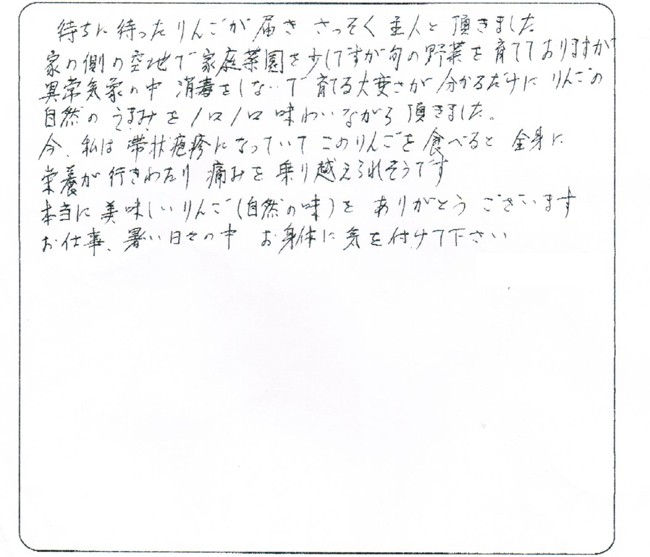 待ちに待ったりんごが届き さっそく主人と頂きました
家の側の空地で家庭菜園を少しですが旬の野菜を育てておりますが
異常気象の中 消毒をしないで育てる大変さが分かるだけにりんごの
自然のうまみを一口一口味わいながら頂きました。
今、私は帯状疱疹になっていてこのりんごを食べると全身に
栄養が行きわたり痛みを乗り越えられそうです
本当に美味しいりんご(自然の味)を ありがとう ございます
お仕事、暑い日々の中 お身体に気を付けて下さい